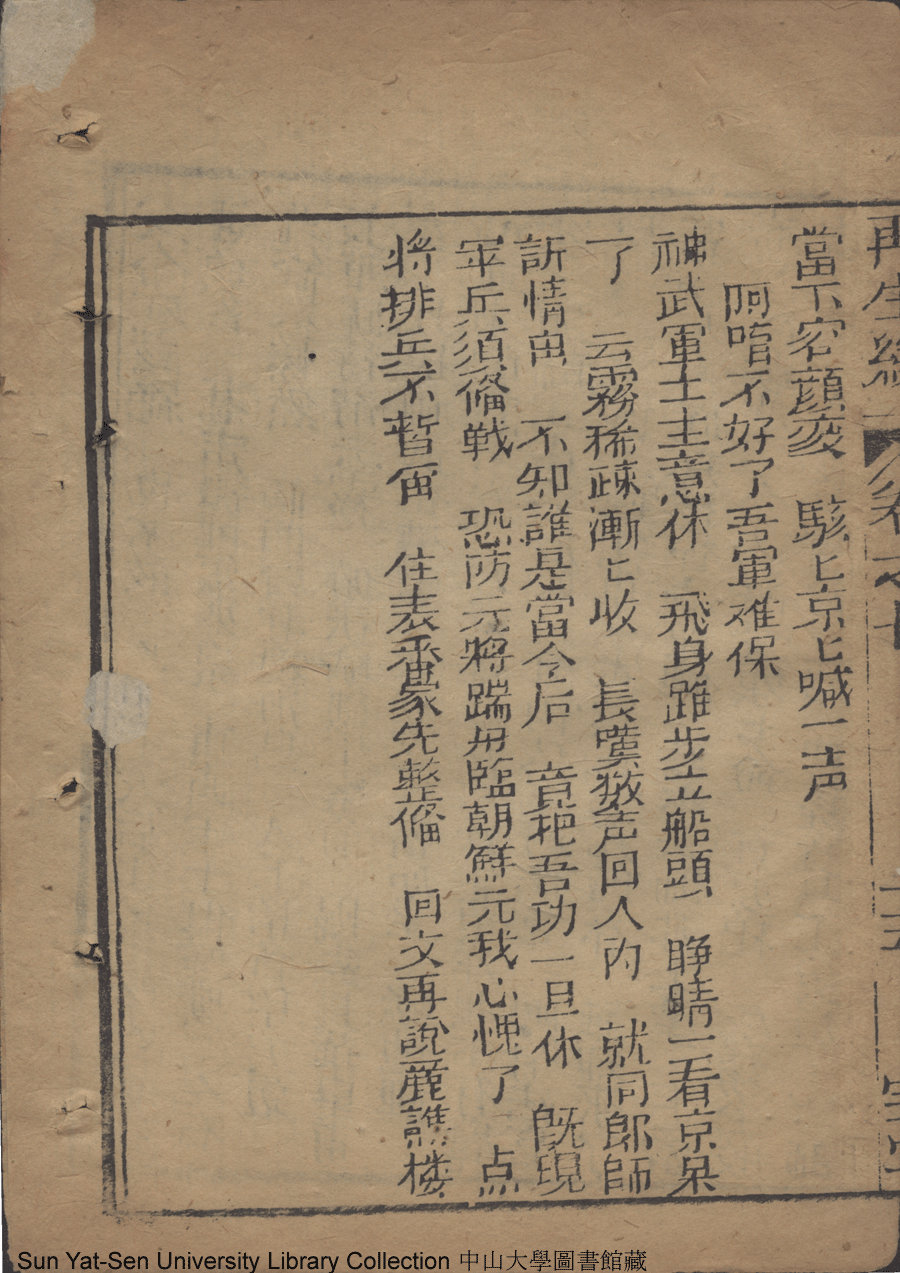 再生緣 卷之十
當下容顏変 駭匕京匕喊一声
阿唷不好了吾軍难保
神武軍士主意休 飛身雖步立船頭 睁睛一看京呆
了 云霧稀疎漸匕收 長嘆数声回人內 就同郎師
訴情由 不知誰是當今后 竟把吾功一旦休 既現
軍兵須俻戦 恐防元將踹舟臨朝鮮元我心愧了 点
将排兵不暫甾 住表番家先整俻 回文再說麗譙楼
Sun Yat-Sen University Library Collection 中山大學圖書館藏